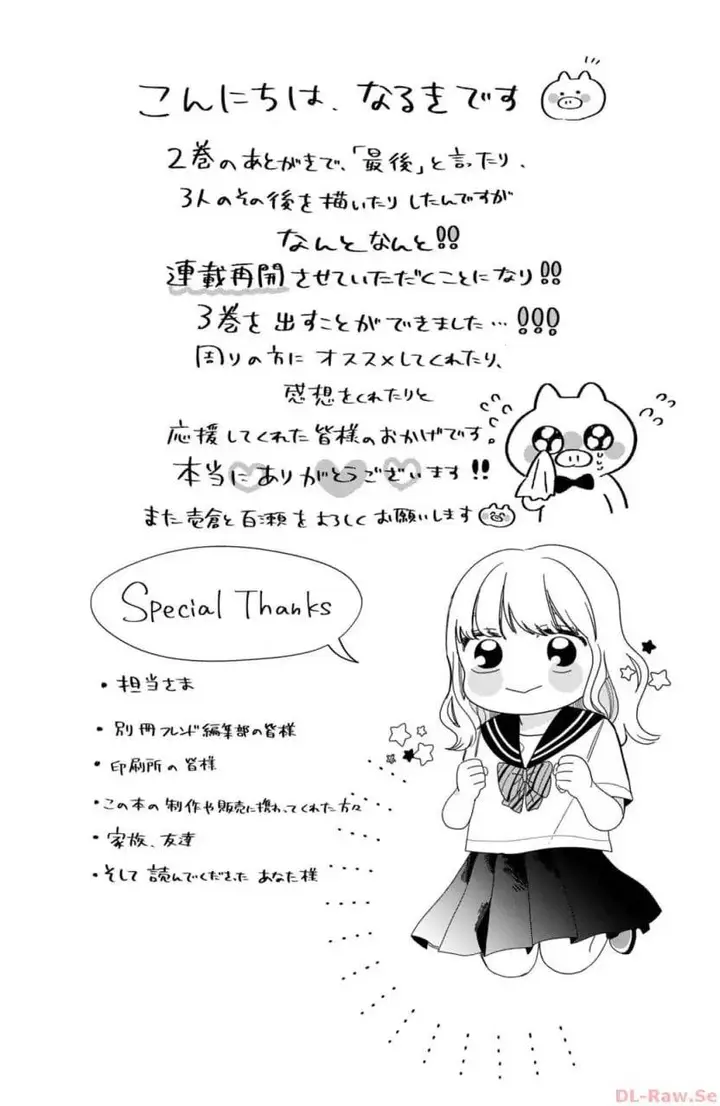 こんにちは、なるきです
2巻のあとがきで、「最後」と言ったり、
3人のその後を描いたりしたんですが
なんとなんと!!
連載再開させていただくことになり!!
3巻を出すことができました…!!!
周りの方にオススメしてくれたり、
感想をくれたりと
応援してくれた皆様のおかげです。
本当にありがとうございます!!
また壱倉と百瀬をよろしくお願いします
Special Thanks
・担当さま
・別冊フレンド編集部の皆様
・印刷所の皆様
・この本の制作や販売に携わってくれた方々
・家族、友達
・そして読んでくださったあなた様
DL-Raw.Se